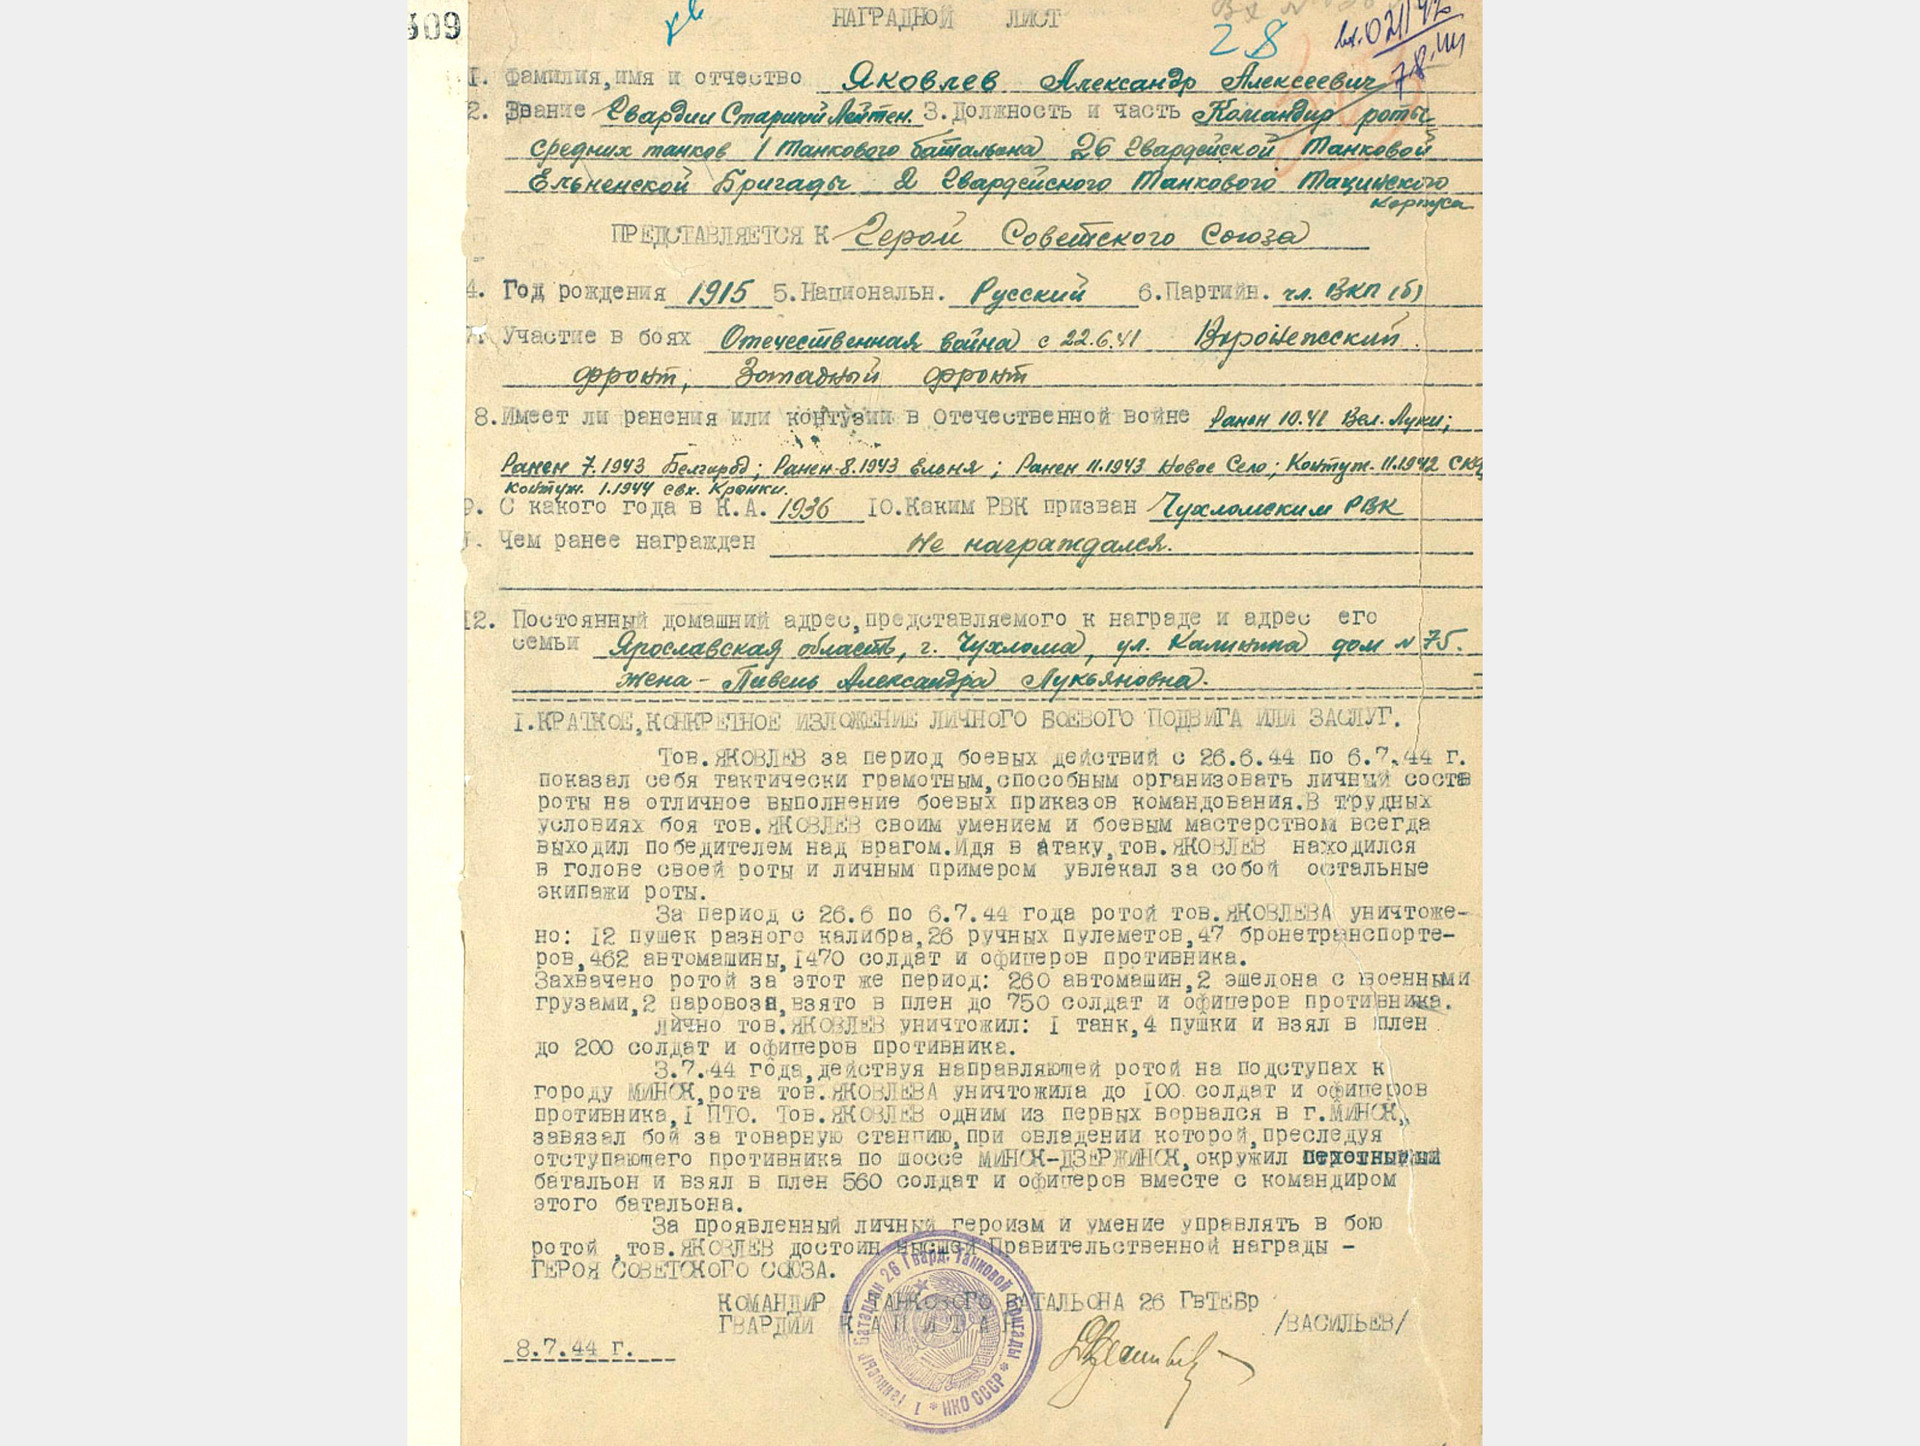 309
НАГРАДНОЙ ЛИСТ
28
вх. 02142
1. Фамилия,имя и отчество Яковлев Александр Алексеевич
2. Звание Гвардии Старший Лейтен. 3.Должность и часть Командир роты
средних танков 1 Танкового батальона 26 Гвардейской Танковой
Ельненской Бригады 2 Гвардейского Танкового Тацинского
корпуса
ПРЕДСТАВЛЯЕТСЯ К Герой Советского Союза
4. Год рождения 1915 5.Национальн. Русский 6.Партийн. чл. ВКП(б)
7. Участие в боях Отечественная война с 22.6.41 Воронежский
фронт, Западный фронт
8.Имеет ли ранения или контузии в Отечественной войне Ранен 10.41 Вел. Луки;
Ранен 7.1943 Белгород; Ранен 8.1943 Ельня; Ранен 11.1943 Новое Село; Контуж. 11.1942
контуж. 1.1944 свх. Кронки.
9. С какого года в К.А. 1936 10.Каким РВК призван Чухломским РВК
. Чем ранее награжден Не награждался.
12. Постоянный домашний адрес,представляемого к награде и адрес его
семьи Ярославская область, г. Чухлома, ул. Калинина дом № 75.
жена - Пивень Александра Лукьяновна.
I.КРАТКОЕ,КОНКРЕТНОЕ ИЗЛОЖЕНИЕ ЛИЧНОГО БОЕВОГО ПОДВИГА ИЛИ ЗАСЛУГ.
Тов.ЯКОВЛЕВ за период боевых действий с 26.6.44 по 6.7.44 г.
показал себя тактически грамотным,способным организовать личный состав
роты на отличное выполнение боевых приказов командования.В трудных
условиях боя тов.ЯКОВЛЕВ своим умением и боевым мастерством всегда
выходил победителем над врагом.Идя в атаку,тов.ЯКОВЛЕВ находился
в голове своей роты и личным примером увлекал за собой остальные
экипажи роты.
За период с 26.6 по 6.7.44 года ротой тов.ЯКОВЛЕВА уничтоже-
но: 12 пушек разного калибра,26 ручных пулеметов,47 бронетранспорте-
ров,462 автомашины,1470 солдат и офицеров противника.
Захвачено ротой за этот же период: 260 автомашин,2 эшелона с военными
грузами,2 паровоза,взято в плен до 750 солдат и офицеров противника.
Лично тов.ЯКОВЛЕВ уничтожил: 1 танк,4 пушки и взял в плен
до 200 солдат и офицеров противника.
3.7.44 года,действуя направляющей ротой на подступах к
городу МИНСК,рота тов.ЯКОВЛЕВА уничтожила до 100 солдат и офицеров
противника,1 ПТО. Тов.ЯКОВЛЕВ одним из первых ворвался в г.МИНСК,
завязал бой за товарную станцию,при овладении которой,преследуя
отступающего противника по шоссе МИНСК-ДЗЕРЖИНСК,окружил пехотный
батальон и взял в плен 560 солдат и офицеров вместе с командиром
этого батальона.
За проявленный личный героизм и умение управлять в бою
ротой ,тов.ЯКОВЛЕВ достоин высшей Правительственной награды -
ГЕРОЯ СОВЕТСКОГО СОЮЗА.
КОМАНДИР 1 ТАНКОВОГО БАТАЛЬОНА 26 ГвТЕБр
ГВАРДИИ КАПИТАН /ВАСИЛЬЕВ/
8.7.44 г.
1 Танковый батальон 26 Гвард. Танковой бригады * НКО СССР *